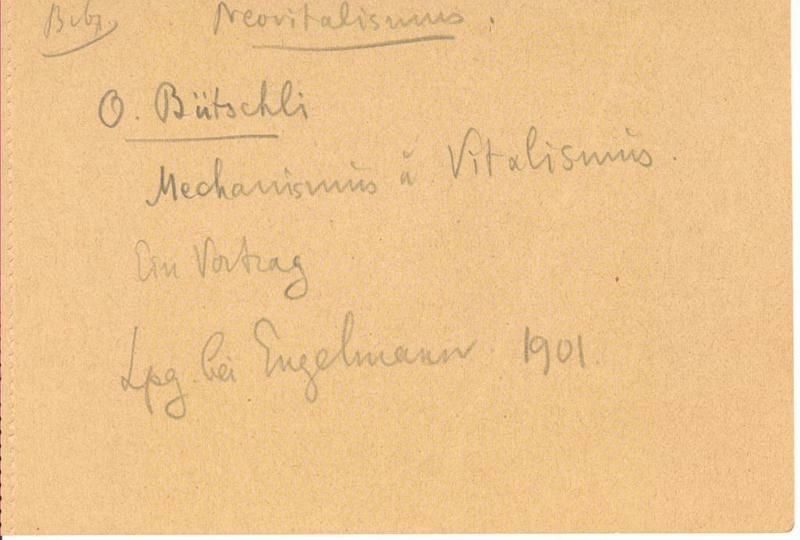 Neovitalismus.
O. Bütschli
Mechanismus u Vitalismus.
Ein Vortrag
Lpg. bei Engelmann. 1901.